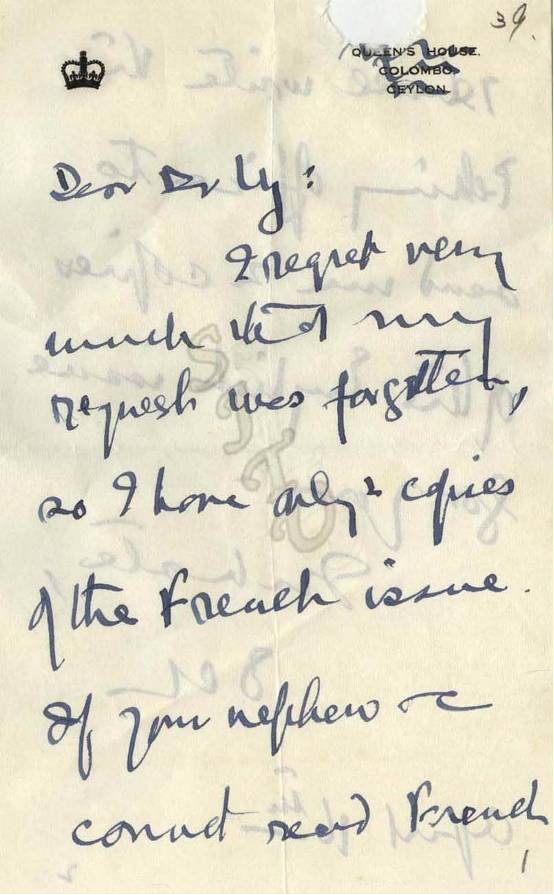 39.
QUEEN'S HOUSE,
COLOMBO
CEYLON.
Dear Dr
I regret very
much that my
request was forgotten,
so I have only 2 copies
of the French issue.
If your nephew
cannot read French
1